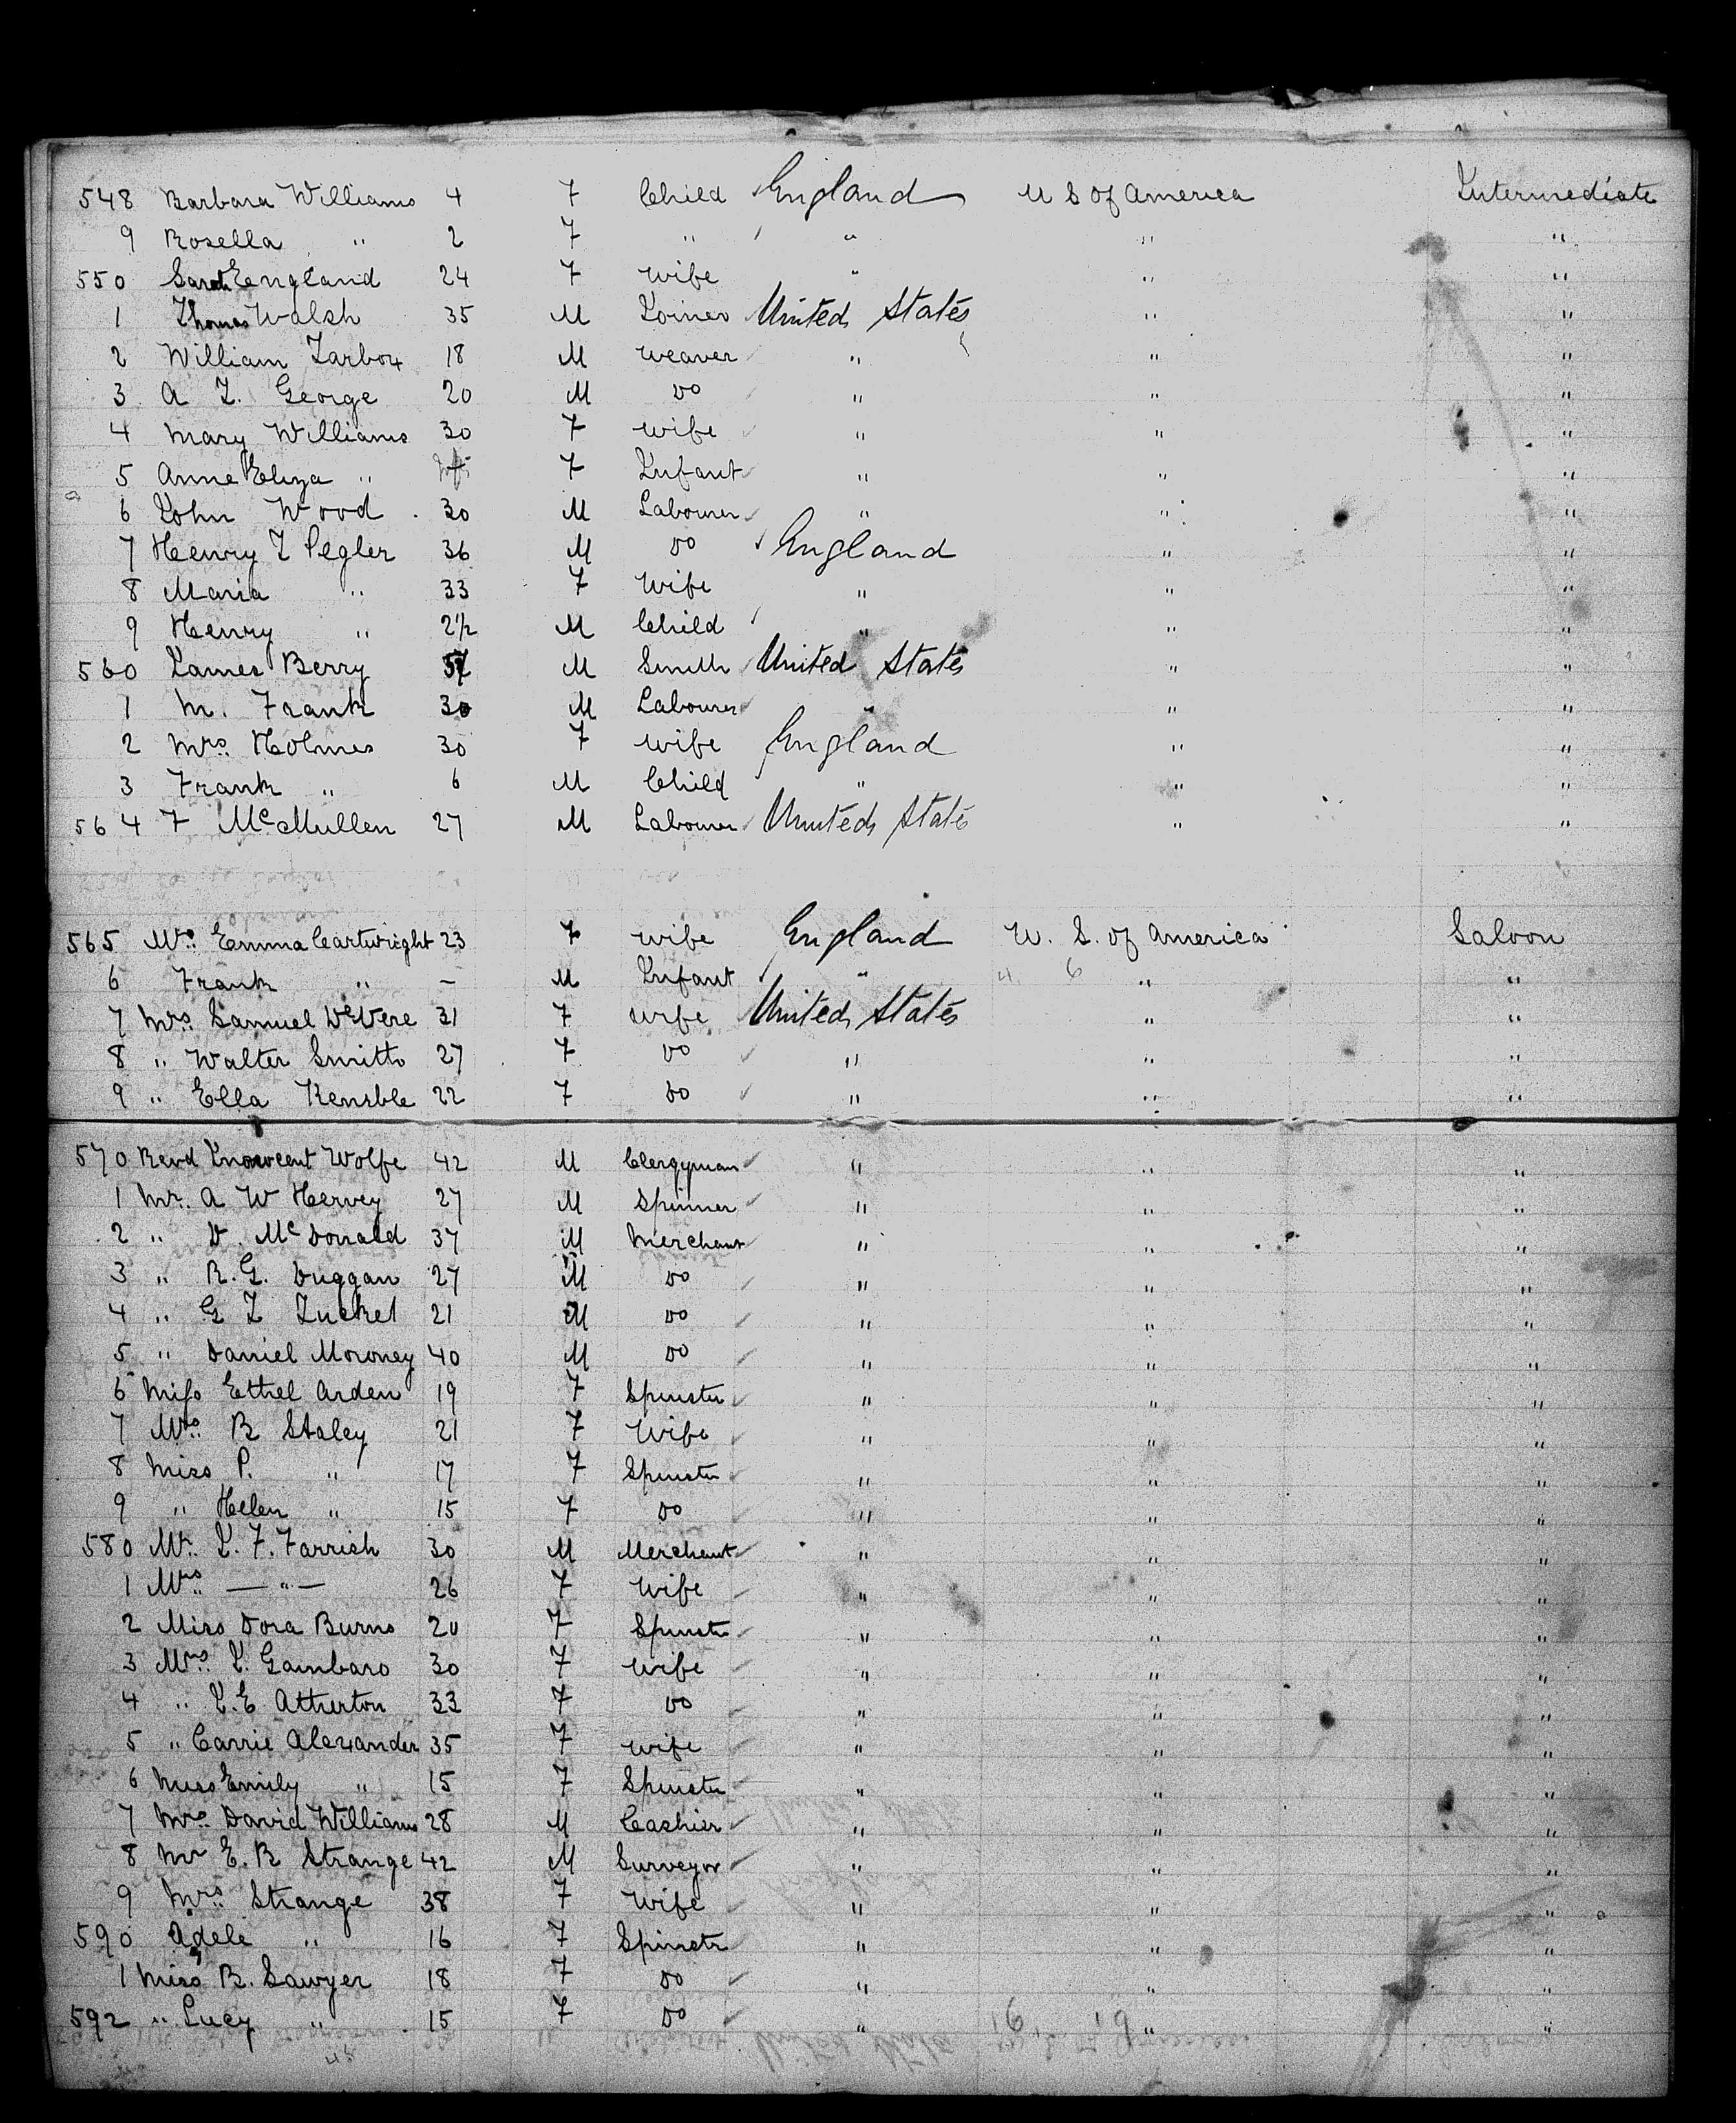 548 Barbara Williams 4 F Child England U S of America Intermediate
9 Rosella " 2 F " " " "
550 Sarah England 24 F Wife " " "
1 Thomas Walsh 35 M Joiner United States " "
2 William Tarbox 18 M Weaver " " "
3 A T. George 20 M Do " " "
4 Mary Williams 30 F Wife " " "
5 Anne Eliza " F Infant " " "
6 John Wood 30 M Labourer " " "
7 Henry T Pegler 36 M Do England " "
8 Maria " 33 F Wife " " "
9 Henry " 2 1/2 M Child " " "
560 James Berry M Smith United States " "
1 M. Frank 30 M Labourer " " "
2 Mrs. Holmes 30 F Wife England " "
3 Frank " 6 M Child " " "
564 F McMullen 27 M Labourer United States " "
565 Mrs. Emma Cartwright 23 F Wife England U. S. of America Saloon
6 Frank " – M Infant " " "
7 Mrs. Samuel DeVere 31 F Wife United States " "
8 " Walter Smith 27 F Do " " "
9 " Ella Kensble 22 F Do " " "
570 Revd Wolfe 42 M Clergyman " " "
1 Mr. A W Hervey 27 M Spinner " " "
2 " D. McDonald 37 M Merchant " " "
3 " R. G. Duggan 27 M Do " " "
4 " G T Tuckel 21 M Do " " "
5 " Daniel Moroney 40 M Do " " "
6 Miss Ethel Arden 19 F Spinster " " "
7 Mrs. R Staley 21 F Wife " " "
8 Miss P. " 17 F Spinster " " "
9 " Helen " 15 F Do " " "
580 Mr. J. F. Farrish 30 M Merchant " " "
1 Mrs. — " — 26 F Wife " " "
2 Miss Dora Burns 20 F Spinster " " "
3 Mrs. J. Gambaro 30 F Wife " " "
4 " J. E. Atherton 33 F Do " " "
5 " Carrie Alexander 35 F Wife " " "
6 Miss Emily " 15 F Spinster " " "
7 Mrs. David Williams 28 M Cashier " " "
8 Mr E. R Strange 42 M Surveyor " " "
9 Mrs. Strange 38 F Wife " " "
590 Adele " 16 F Spinster " " "
1 Miss R. Sawyer 18 F Do " " "
592 " Lucy " 15 F Do " " "